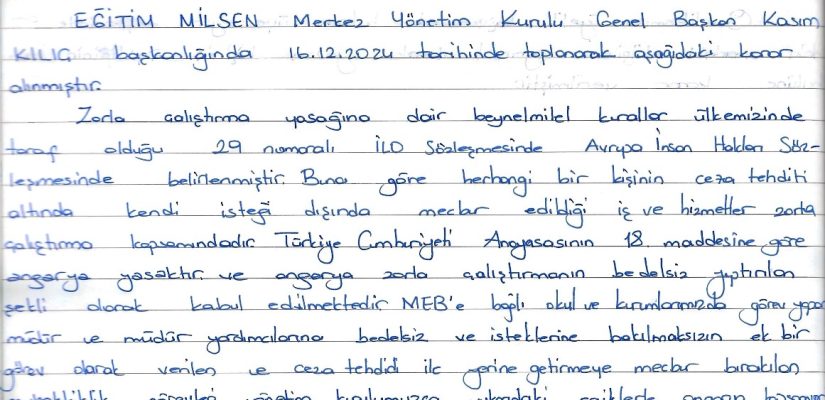 EĞİTİM MİLSEN Merkez Yönetim Kurulu Genel Başkan Kasım
KILIÇ başkanlığında 16.12.2024 tarihinde toplanarak aşağıdaki karar
alınmıştır.
Zorla çalıştırma yasağına dair beynelmilel kurallar ülkemizinde
taraf olduğu 29 numaralı İLO Sözleşmesinde Avrupa İnsan Hakları Söz-
leşmesinde belirlenmiştir. Buna göre herhangi bir kişinin ceza tehditi
altında kendi isteği dışında mecbur edildiği iş ve hizmetler zorla
çalıştırma kapsamındadır. Türkiye Cumhuriyeti Anayasasının 18. maddesine göre
angarya yasaktır. ve angarya zorla çalıştırmanın bedelsiz yaptırılan
şekli olarak kabul edilmektedir MEB'e bağlı okul ve kurumlarımızda görev yapan
müdür ve müdür yardımcılarına bedelsiz ve isteklerine bakılmaksızın ek bir
görev olarak verilen ve ceza tehdidi ile yerine getirmeye mecbur bırakılan
görevleri yönetim kurulumuzca